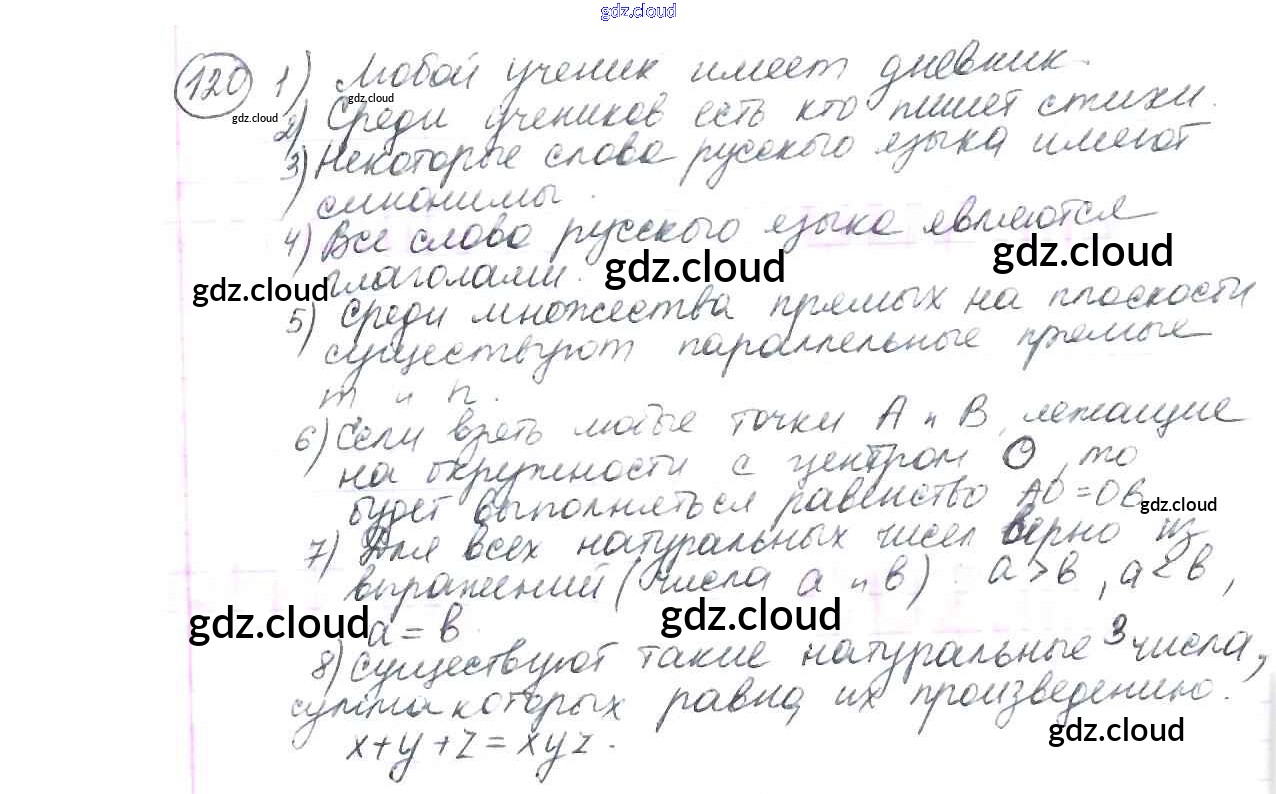 gdz.cloud
120 1) Любой ученик имеет дневник.
gdz.cloud
gdz.cloud
2) Среди учеников есть кто пишет стихи.
3) Некоторые слова русского языка имеют
синонимы.
4) Все слова русского языка являются
gdz.cloud
gdz.cloud
gdz.cloud
глаголами.
5) Среди множества прямых на плоскости
существуют параллельные прямые
m и n.
6) Если взять любые точки A и B, лежащие
на окружности с центром O, то
будет выполняться равенство AO = OB
gdz.cloud
7) Для всех натуральных чисел верно из
выражений (числа a и b) a > b, a < b,
gdz.cloud
gdz.cloud
a = b
8) Существуют такие натуральные 3 числа,
сумма которых равна их произведению.
gdz.cloud
x + y + z = xyz.